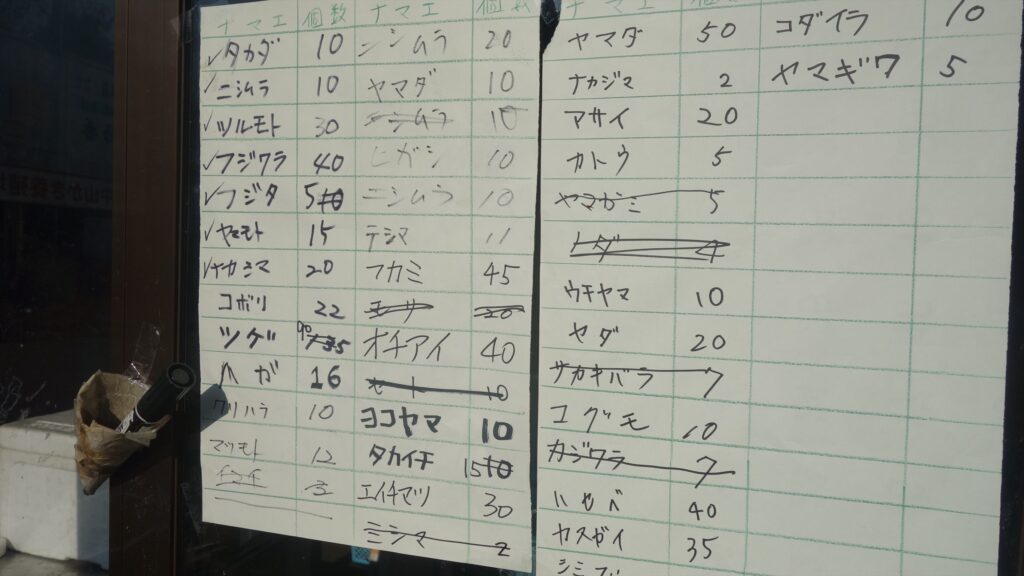 ナマエ 個数 ナマエ 個数
タカダ 10 ニシムラ 20
ニシムラ 10 ヤマダ 10
ツルモト 30 ニシムラ 10
フジワラ 40 ヒガシ 10
フジタ 5 10 ニシムラ 10
ヤマモト 15 テシマ 11
ナカシマ 20 フカミ 45
コボリ 22 20
ツゲ 90 オチアイ 40
ハガ 16 10
クリハラ 10 ヨコヤマ 10
マツモト 12 タカイチ 15 10
エイチマツ 30
ミシマ 2
ナマエ
ヤマダ 50 コダイラ 10
ナカジマ 2 ヤマギワ 5
アサイ 20
カトウ 5
ヤマガミ 5
トダ 4
ウチヤマ 10
ヤダ 20
サカキバラ 7
コグモ 10
カジワラ 7
ハセベ 40
ヤスガイ 35